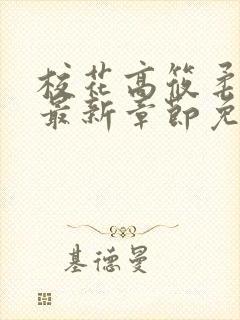 校花高筱柔
最新章節免
基德曼